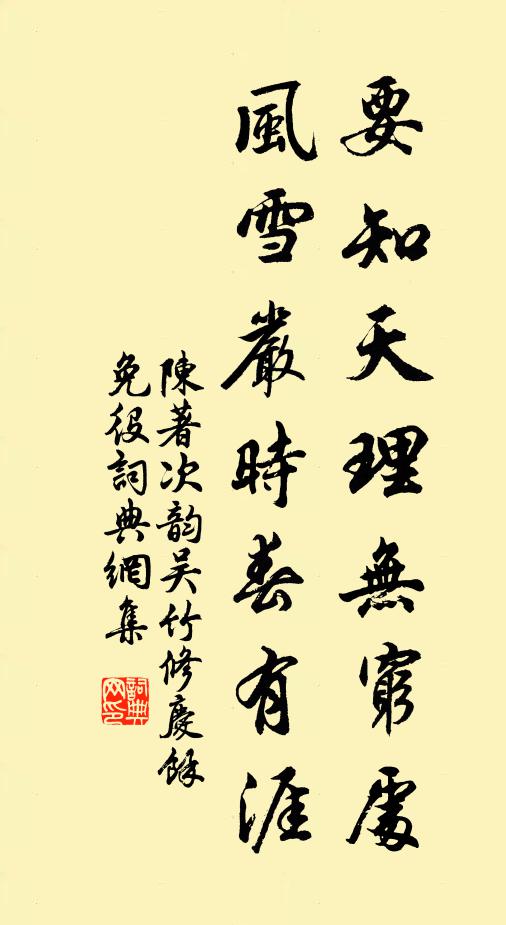 要知天理無窮處
風雪嚴時春有涯
陳著次韵吴竹修慶餘
免役詞典網集
詞典
网印